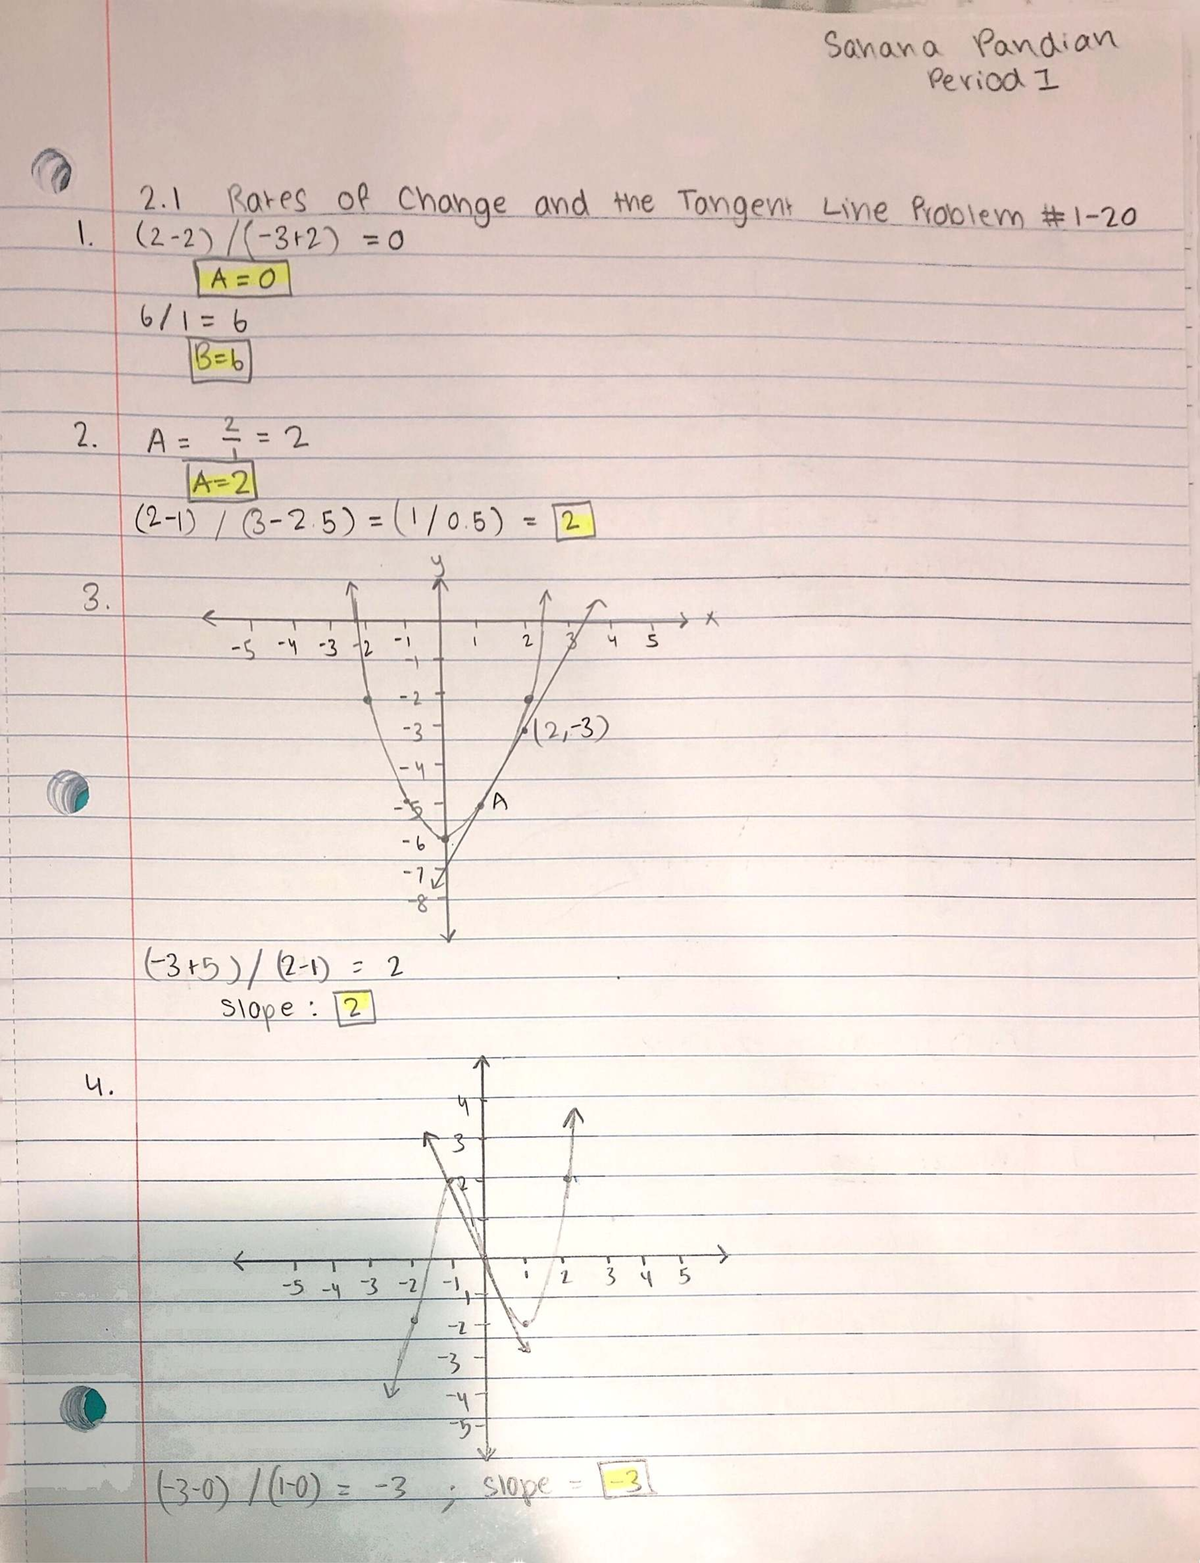 Sanana Pandian
Period 1
2.1 Rates of Change and the Tangent Line Problem #1-20
1. (2-2)/(-3+2) = 0
A = 0
6/1 = 6
B=6
2. A = 2/1 = 2
A=2
(2-1) / (3-2.5) = (1/0.5) = 2
y
3.
x
-5 -4 -3 -2 -1 1 2 3 4 5
-1
-2
-3 (2,-3)
-4
-5 A
-6
-7
-8
(-3+5)/(2-1) = 2
slope: 2
4.
4
3
2
-5 -4 -3 -2 -1 1 2 3 4 5
-1
-2
-3
-4
-5
(-3-0)/(1-0) = -3 ; slope = -3